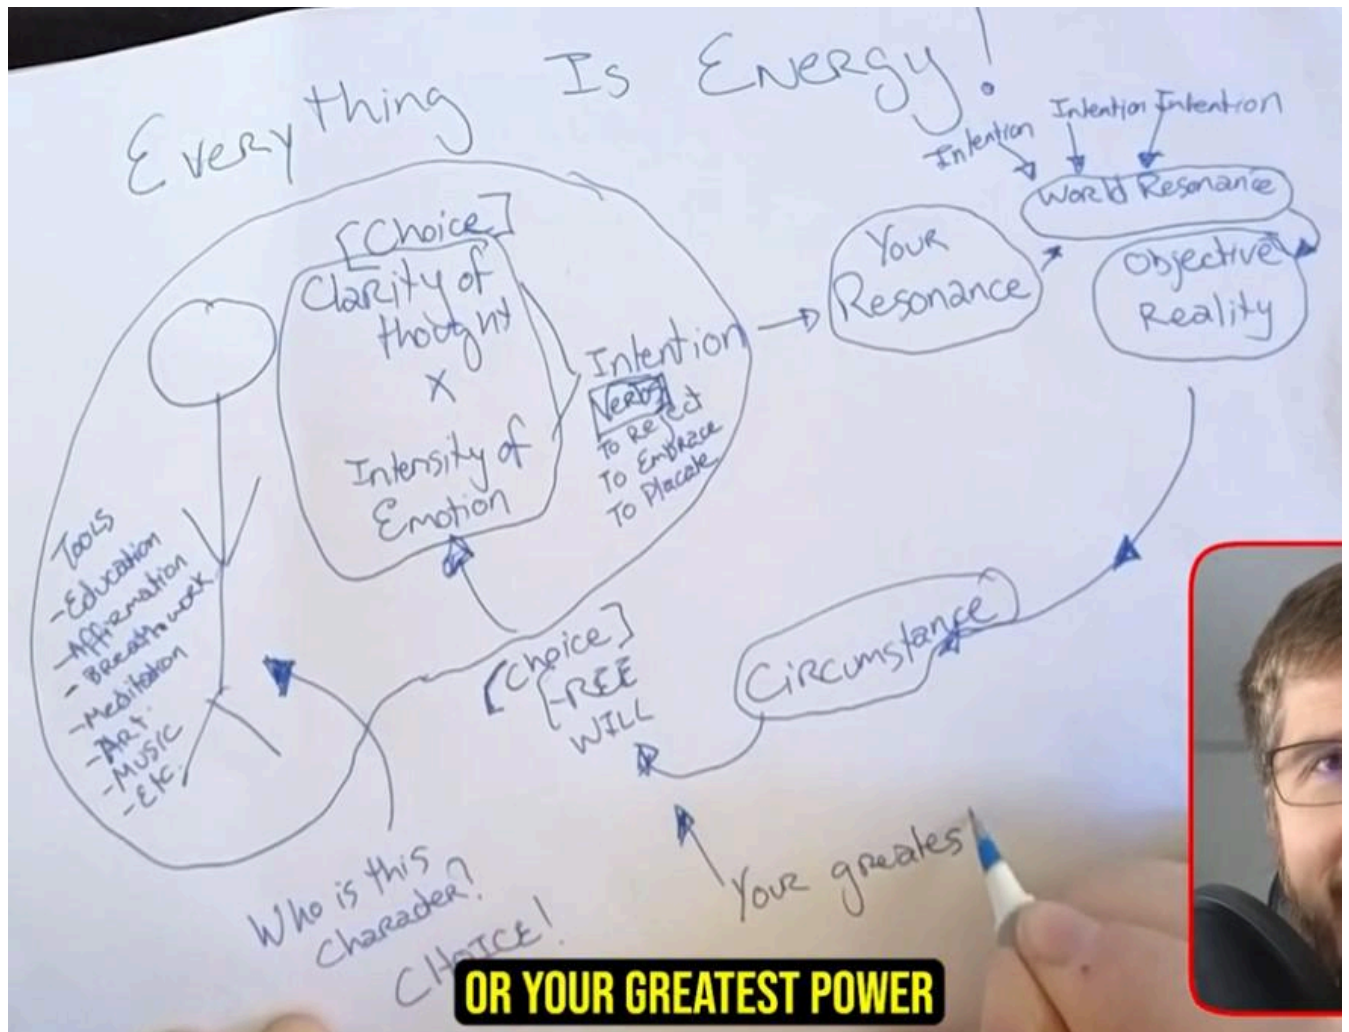 Everything Is Energy!
Intention Intention Intention
World Resonance
Your
Resonance
Objective
Reality
[Choice]
Clarity of
thought
X
Intensity of
Emotion
Intention
Verbs
To Reject
To Embrace
To Placate
Tools
-Education
-Affirmation
-Breathwork
-Meditation
-Art
-Music
-Etc.
[Choice]
FREE
WILL
Circumstance
Who is this
character?
CHOICE!
Your greates
OR YOUR GREATEST POWER